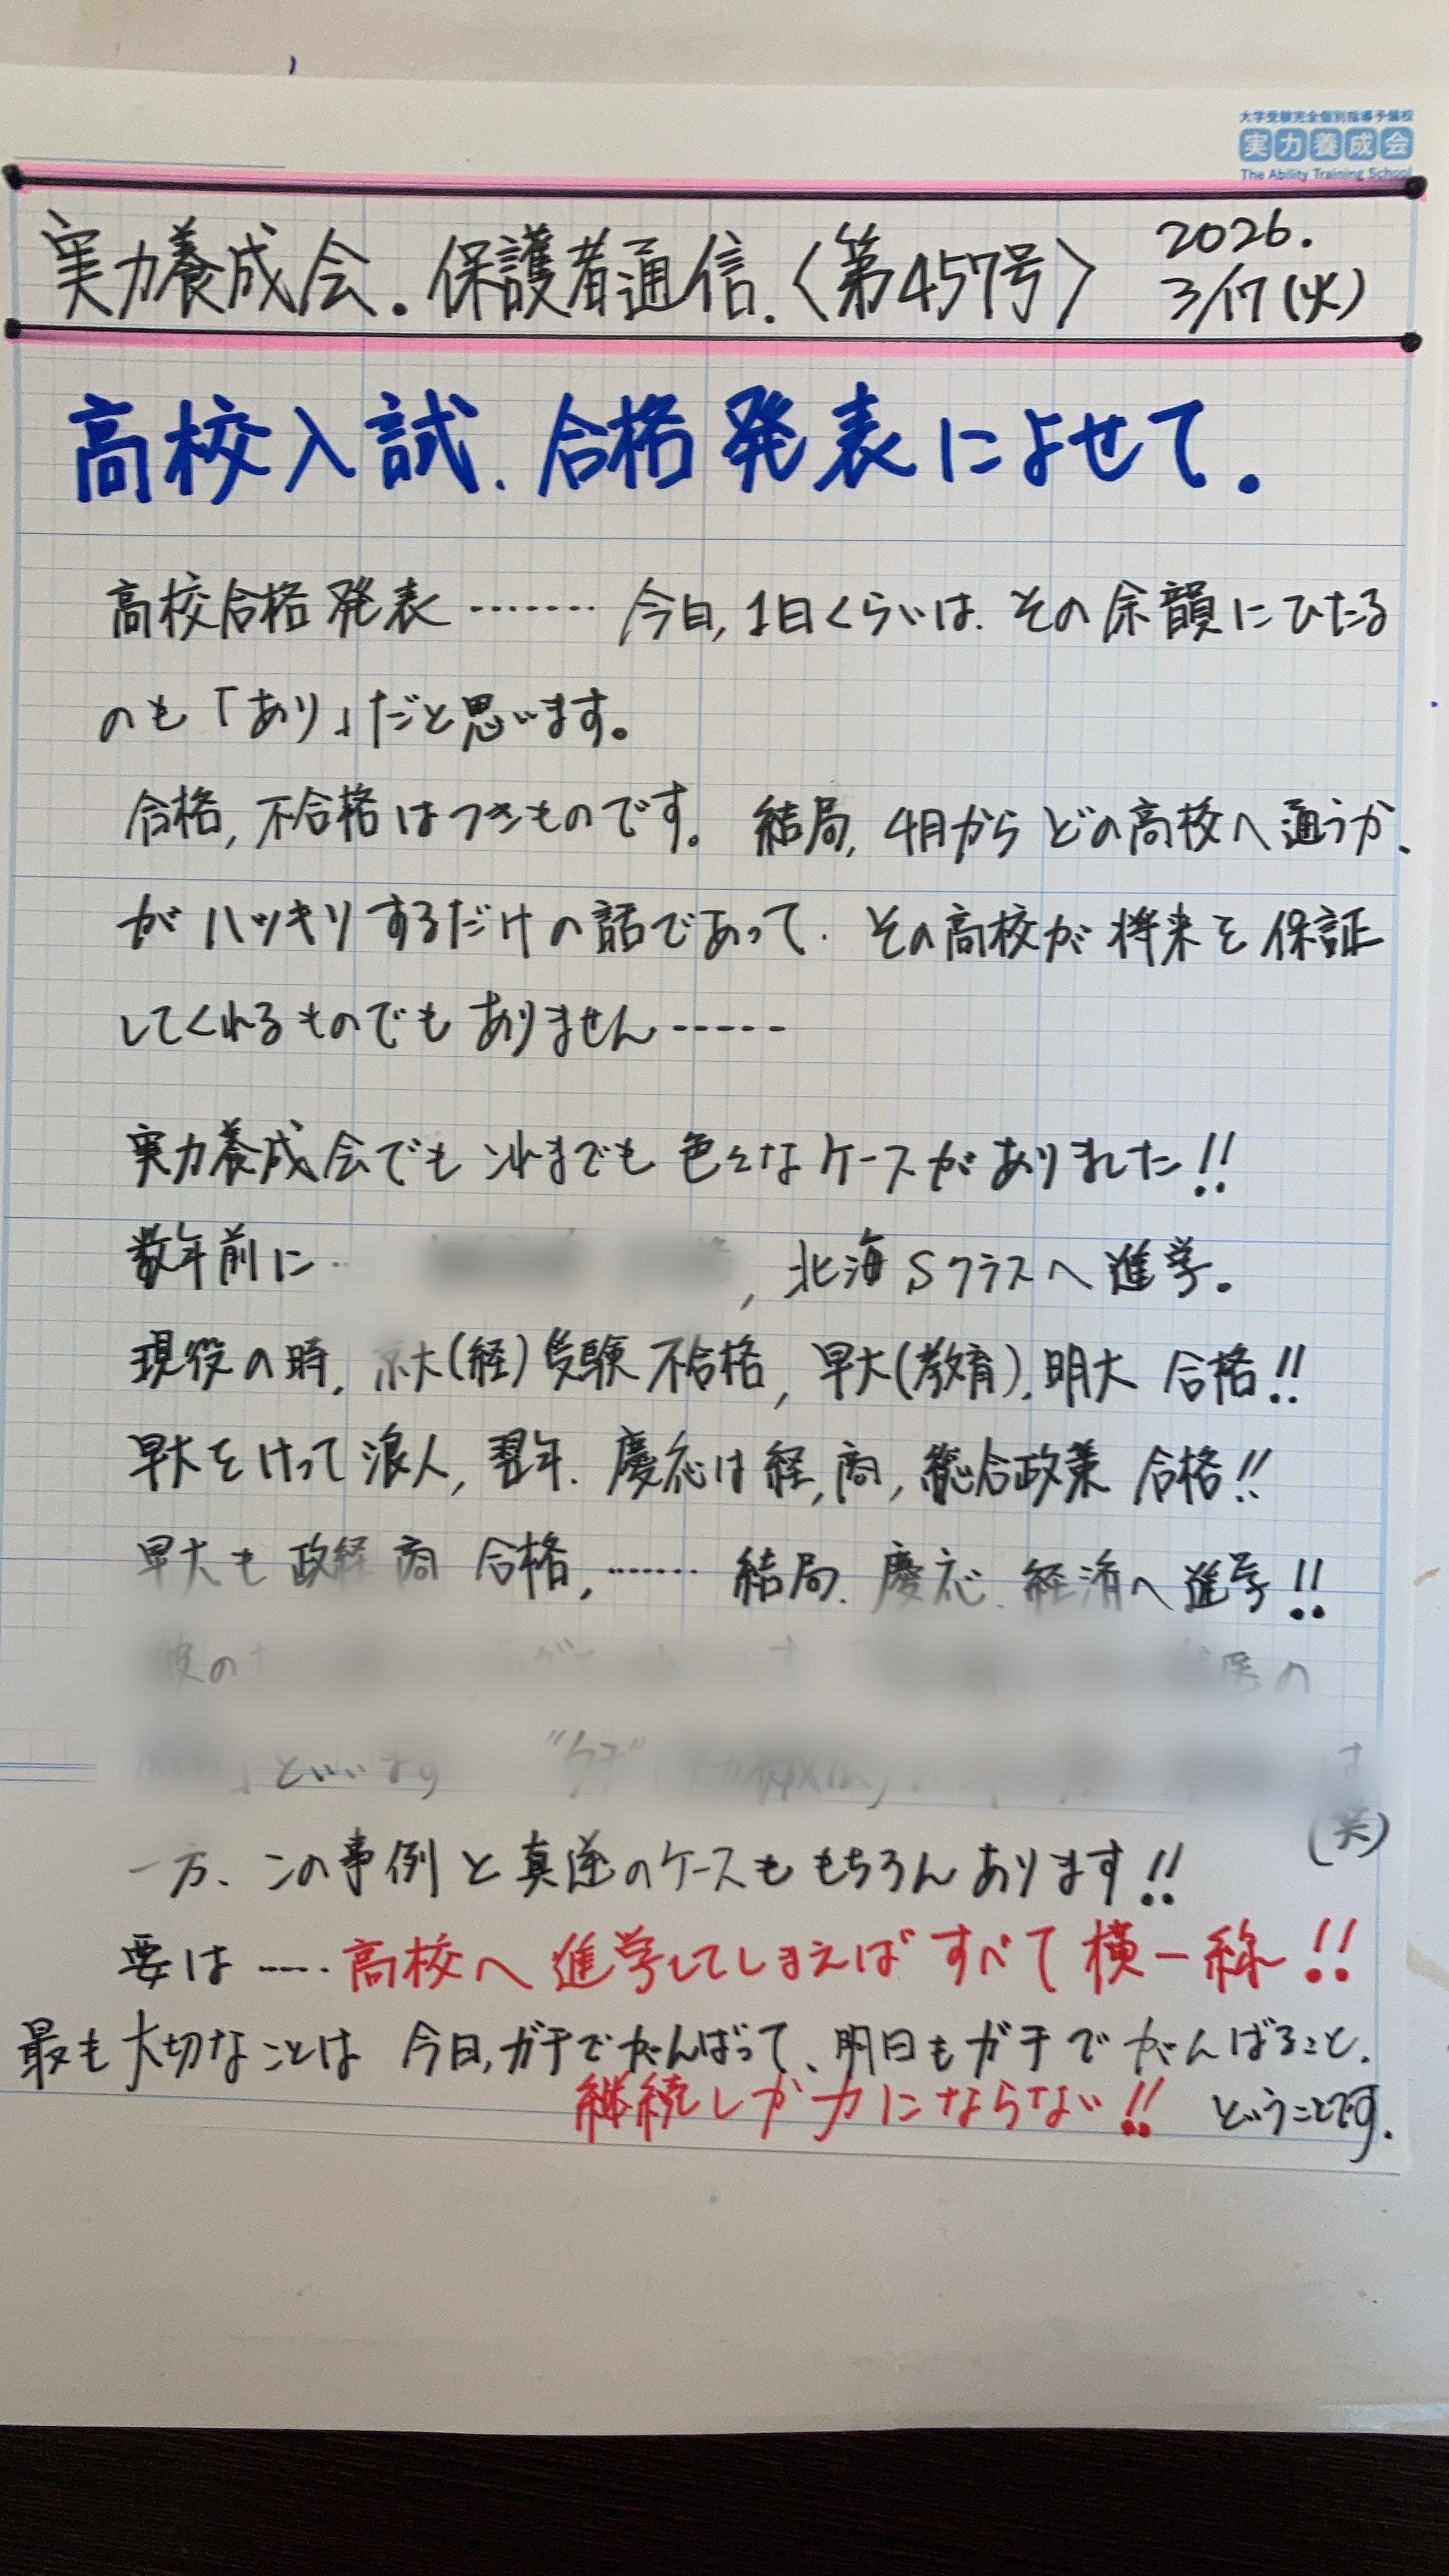 大学受験完全個別指導予備校
実力養成会
The Ability Training School
実力養成会.保護者通信.〈第457号〉
2026.
3/17(火)
高校入試.合格発表によせて.
高校合格発表……… 今日,1日くらいは.その余韻にひたる
のも「あり」だと思います。
合格,不合格はつきものです。結局,4月からどの高校へ通うか、
がハッキリするだけの話であって.その高校が将来を保証
してくれるものでもありません……
実力養成会でもこれまでも色々なケースがありました!!
数年前に‥ ,北海Sクラスへ進学.
現役の時, 大(経)受験不合格,早大(教育),明大 合格!!
早大をけって浪人,翌年.慶応は経,商,総合政策 合格!!
早大も政経 商 合格,……… 結局.慶応.経済へ進学!!
彼の の
」といいます は
(笑)
一方、この事例と真逆のケースももちろんあります!!
要は……高校へ進学してしまえばすべて横一線!!
最も大切なことは 今日,ガチでがんばって、明日もガチでがんばること.
継続しか力にならない!! ということです.